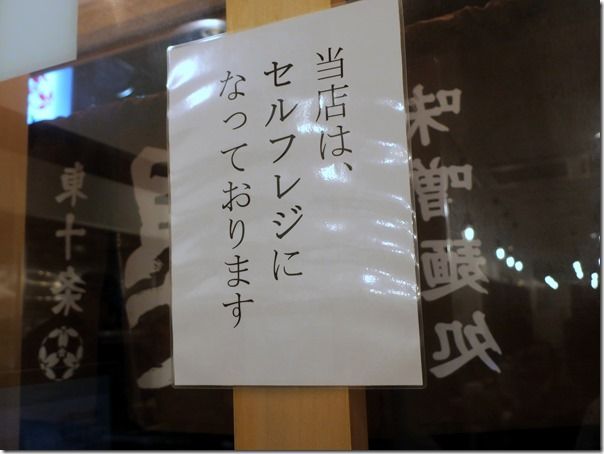 当店は、
セルフレジに
なっております
味噌麺処
東十条